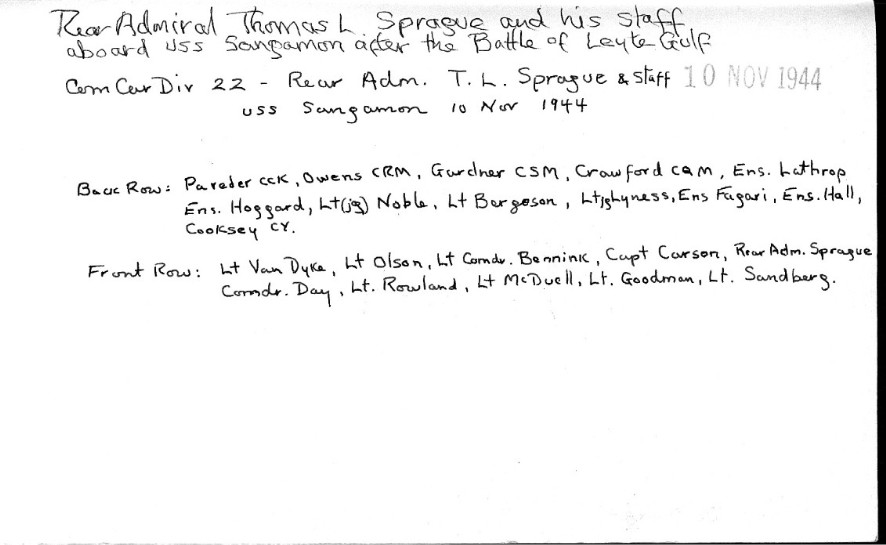 Rear Admiral Thomas L. Sprague and his staff
aboard USS Sangamon after the Battle of Leyte Gulf
Com Car Div 22 - Rear Adm. T. L. Sprague & staff 10 NOV 1944
USS Sangamon 10 Nov 1944
Back Row: Pareder CCK, Owens CRM, Gardner CSM, Crawford CQM, Ens. Lathrop,
Ens. Hoggard, Lt(jg) Noble, Lt Bergeson, Ens Fugari, Ens. Hall,
Cooksey CY.
Front Row: Lt Van Dyke, Lt Olson, Lt Comdr. Bennink, Capt Carson, Rear Adm. Sprague
Comdr. Day, Lt. Rowland, Lt McDuell, Lt. Goodman, Lt. Sandberg.